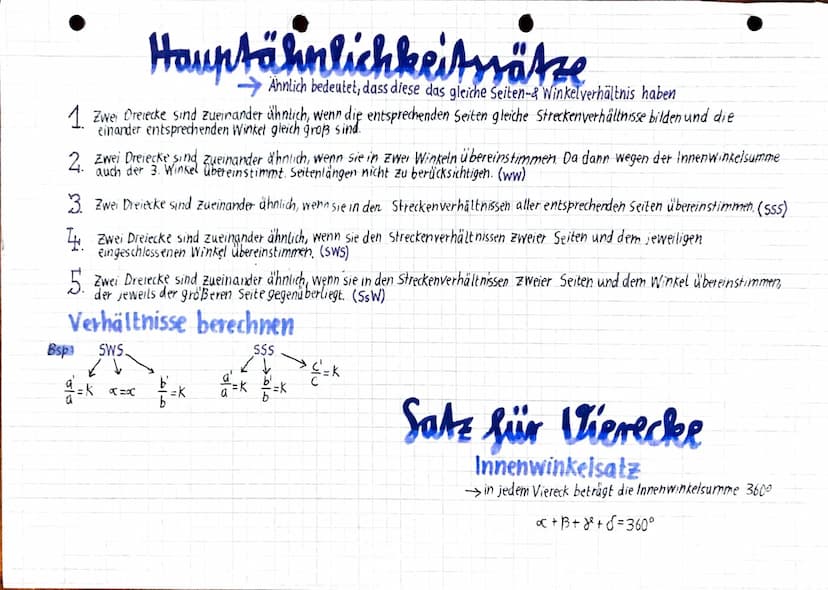 Hauptähnlichkeitssätze
→ Ähnlich bedeutet, dass diese das gleiche Seiten- & Winkelverhältnis haben
1. Zwei Dreiecke sind zueinander ähnlich, wenn die entsprechenden Seiten gleiche Streckenverhältnisse bilden und die
einander entsprechenden Winkel gleich groß sind.
2. Zwei Dreiecke sind zueinander ähnlich, wenn sie in zwei Winkeln übereinstimmen. Da dann wegen der Innenwinkelsumme
auch der 3. Winkel übereinstimmt. Seitenlängen nicht zu berücksichtigen. (WW)
3. Zwei Dreiecke sind zueinander ähnlich, wenn sie in den Streckenverhältnissen aller entsprechenden Seiten übereinstimmen. (SSS)
4. Zwei Dreiecke sind zueinander ähnlich, wenn sie den Streckenverhältnissen zweier Seiten und dem jeweiligen
eingeschlossenen Winkel übereinstimmen. (SWS)
5. Zwei Dreiecke sind zueinander ähnlich, wenn sie in den Streckenverhältnissen zweier Seiten und dem Winkel übereinstimmen,
der jeweils der größeren Seite gegenüberliegt. (SsW)
Verhältnisse berechnen
Bsp: SWS SSS
a'/a = k α=α b'/b = k a'/a = k b'/b = k c'/c = k
Satz für Vierecke
Innenwinkelsatz
→ in jedem Viereck beträgt die Innenwinkelsumme 360°
α + β + γ + δ = 360°